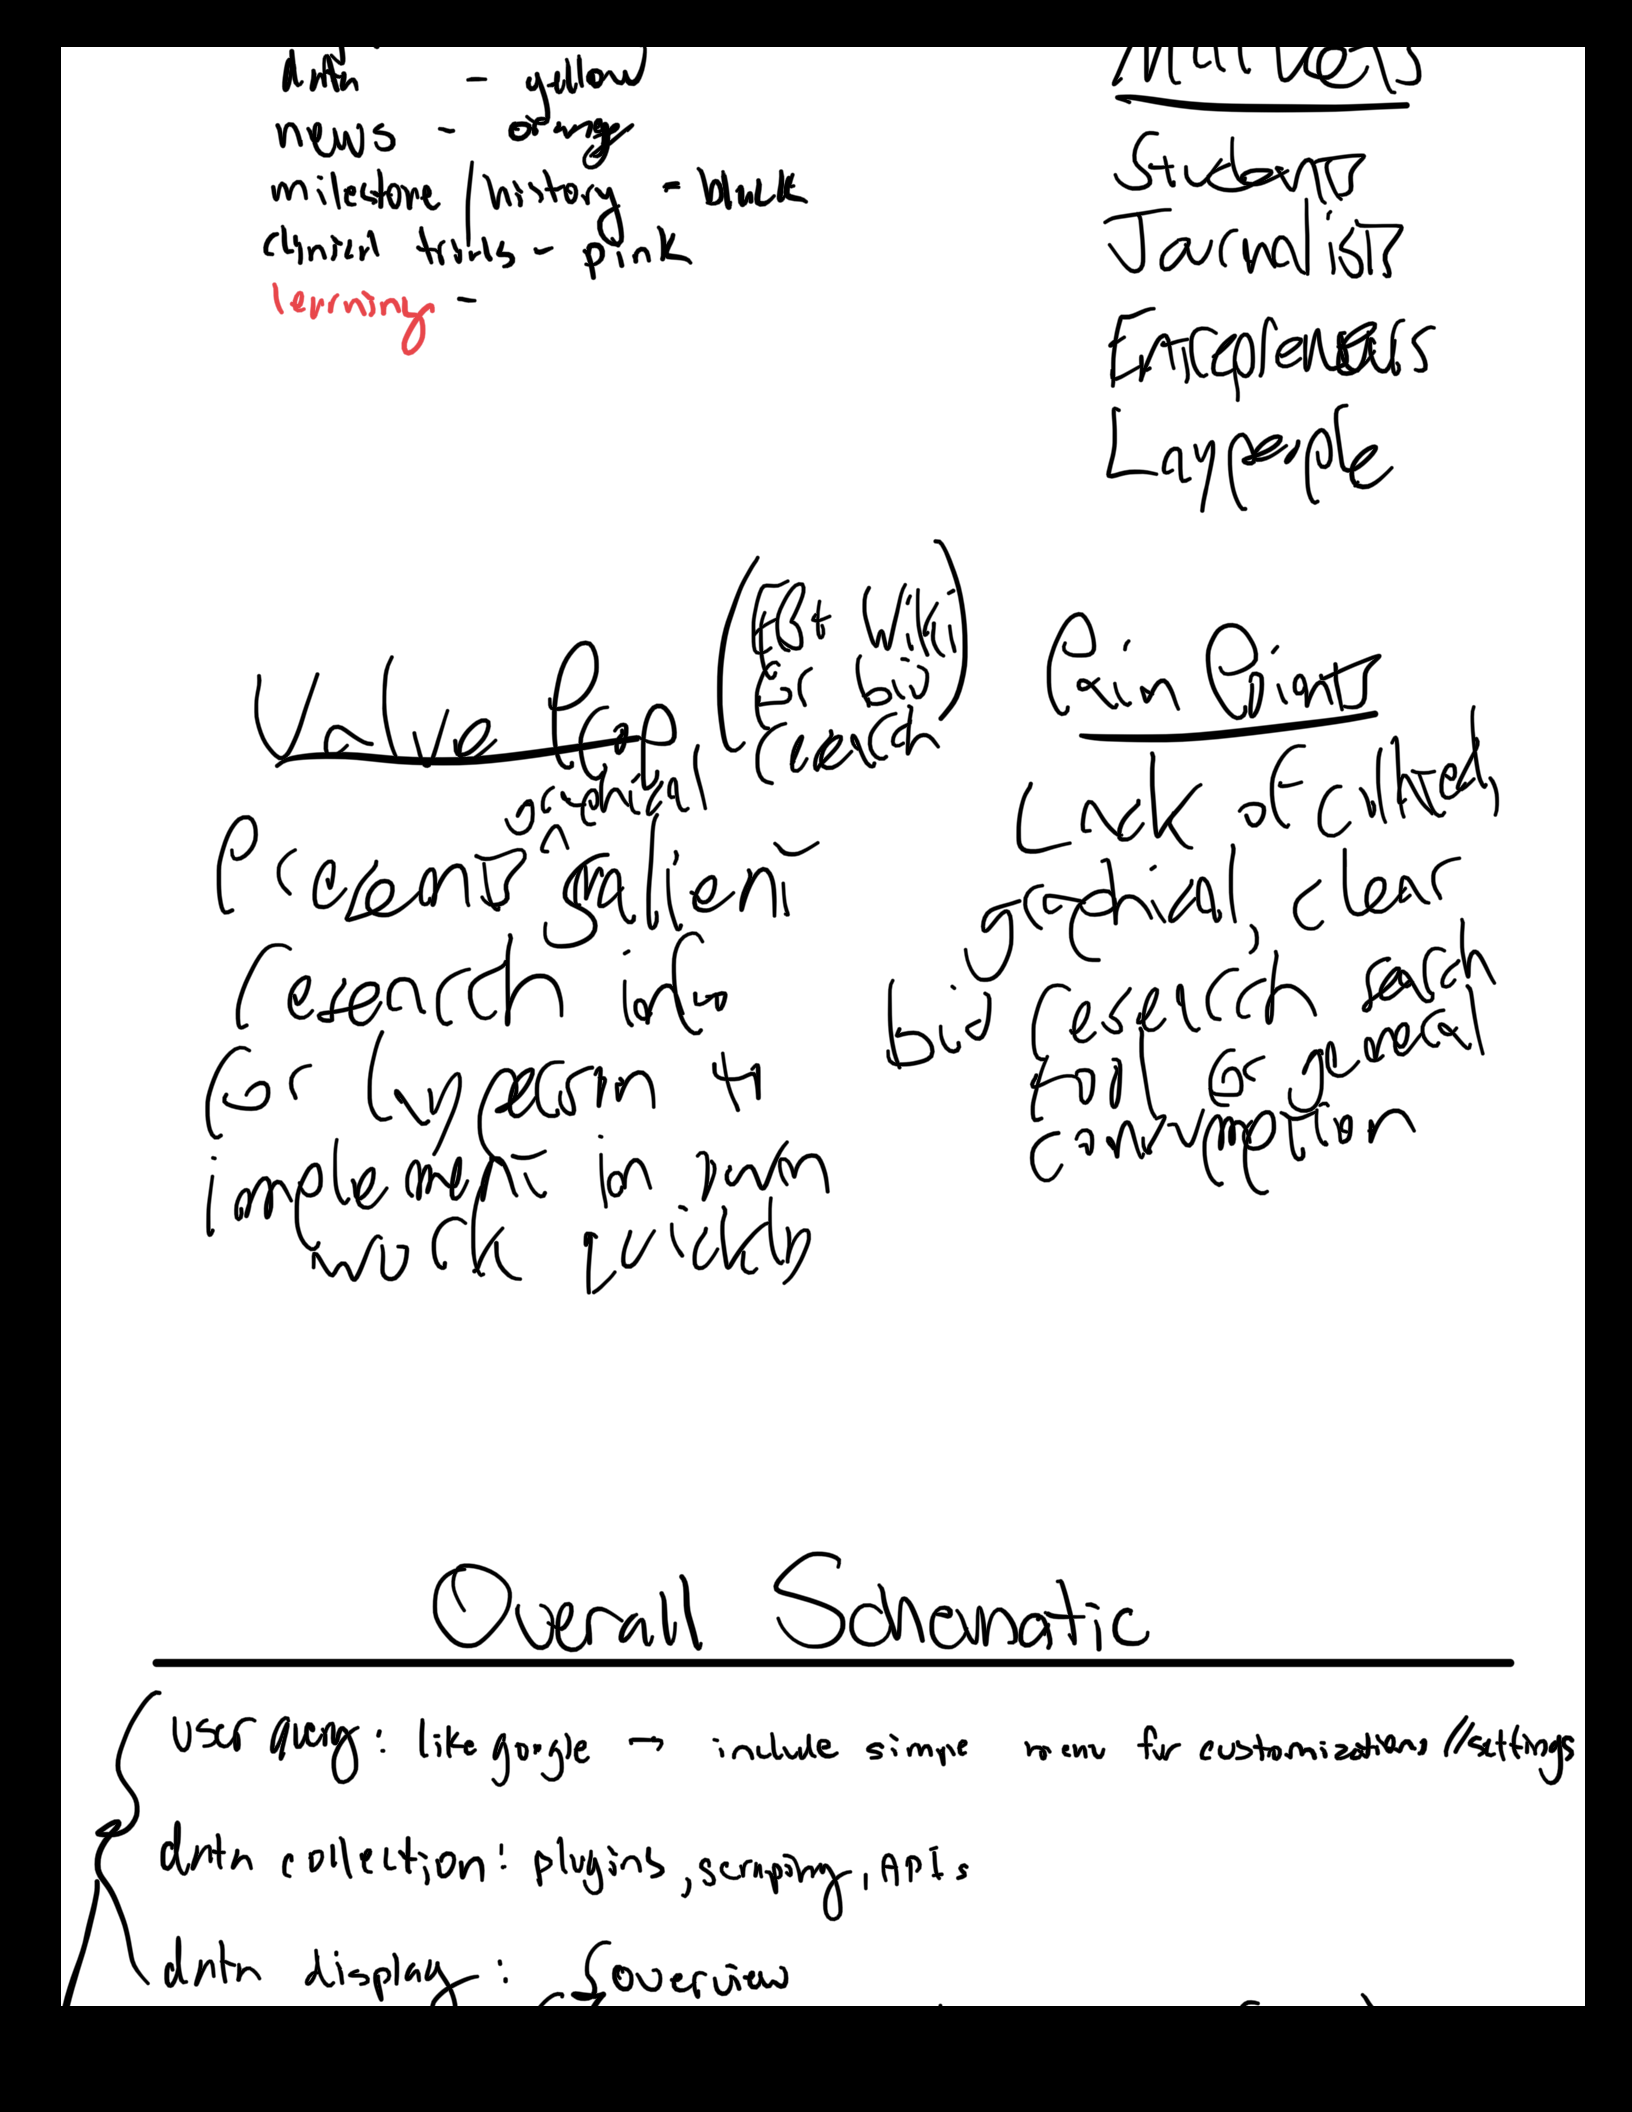 data - yellow
news - orange
milestone/history - black
clinical trials - pink
learning -
Markets
Students
Journalists
Entrepreneurs
Laypeople
Value Prop
Wiki
for bio
research
graphical
Presents ^ salient
research info
for layperson to
implement in own
work quickly
Pain Points
Lack of
graphical, clear
bio research search
tool for general
consumption
Overall Schematic
user query: like google → include simple menu for customizations//settings
data collection: plugins, scraping, APIs
data display: overview